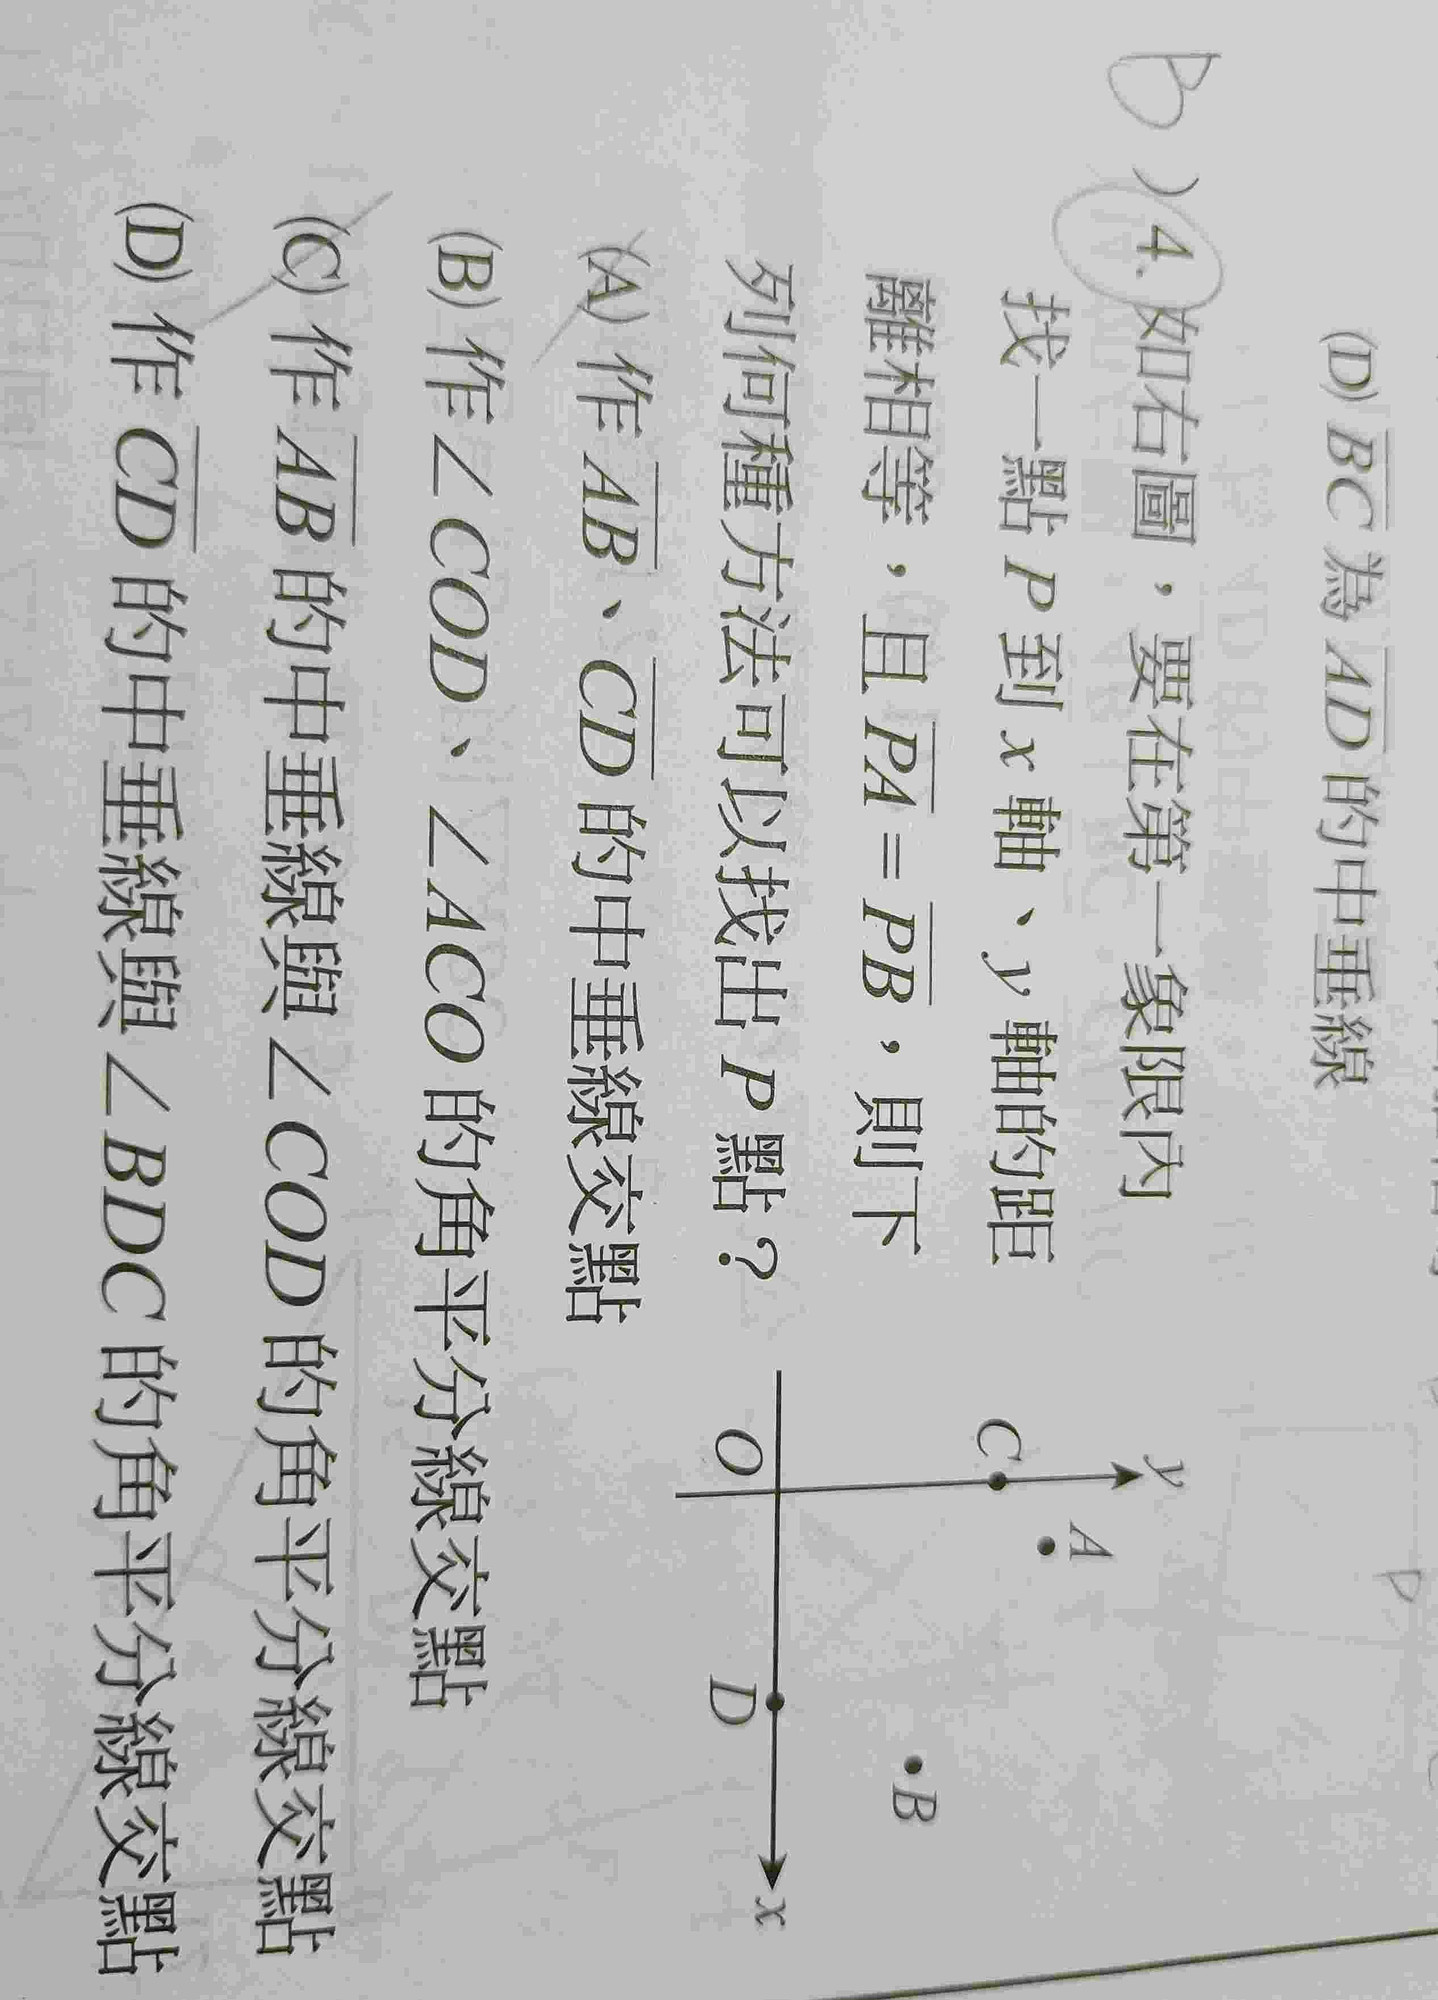 (D) BC 為 AD 的中垂線
B )4. 如右圖，要在第一象限內
找一點 P 到 x 軸、y 軸的距
離相等，且 PA = PB，則下
列何種方法可以找出 P 點？
(A) 作 AB、CD 的中垂線交點
(B) 作∠COD、∠ACO 的角平分線交點
(C) 作 AB 的中垂線與∠COD 的角平分線交點
(D) 作 CD 的中垂線與∠BDC 的角平分線交點
y
A
C
B
O
D
x
P